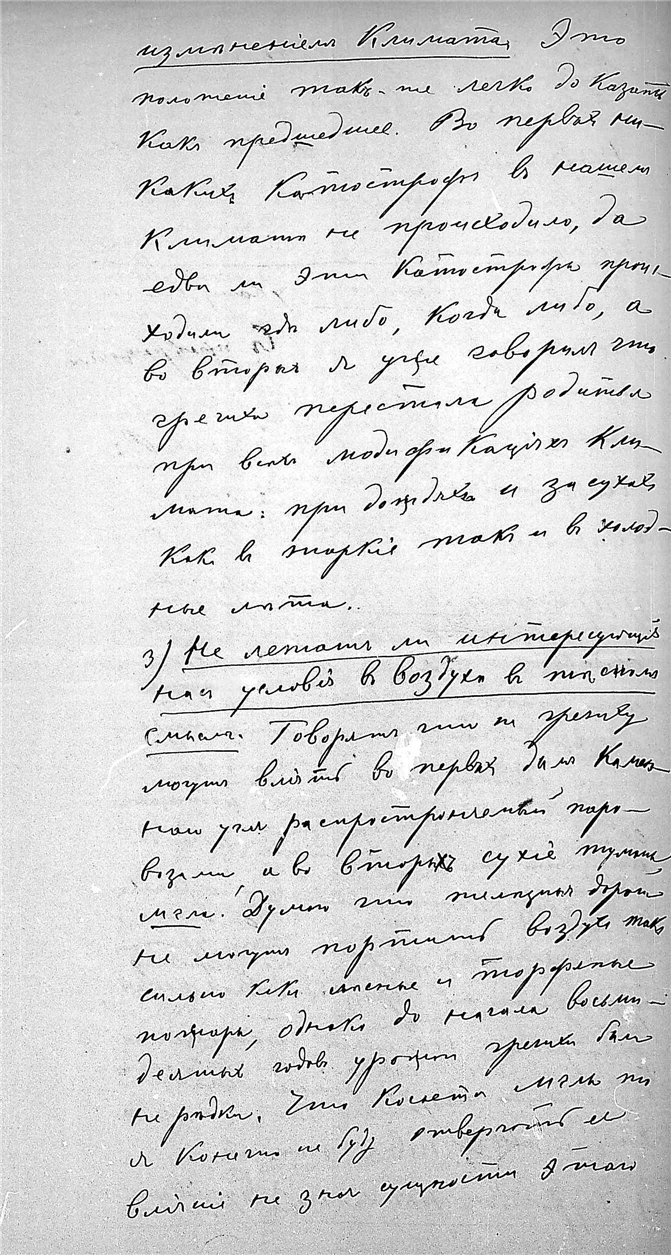 измѣненіемъ Климата. Это
положеніе такъ-же легко доказать
какъ предшедшее. Во первыхъ ни-
какихъ катострофъ въ нашемъ
Климатѣ не происходило, да
едва ли эти Катострофы прои-
ходили гдѣ либо, когда либо, а
во вторыхъ я уже говорилъ что
гречиха перестала родиться
при всѣхъ модификаціяхъ Кли-
мата: при дождяхъ и засухахъ
Какъ въ жаркіе такъ и въ холод-
ные лѣта.
3) Не лежатъ ли интересующія
насъ условія въ воздухѣ въ тѣсномъ
смыслѣ. Говорятъ что на гречиху
могутъ вліять во первыхъ дымъ Камен-
наго угля распространяемый паро-
возами а во вторыхъ сухіе туманы
мгла. Думаю что желѣзныя дороги
не могутъ портить воздухъ такъ
сильно какъ лѣсные и торфяные
пожары, однако до начала восьми-
десятыхъ годовъ урожаи гречихи были
не рѣдки. Что Касается мглы то
я Конечно не буду отвергать ее
вліяніе не зная сущности этого